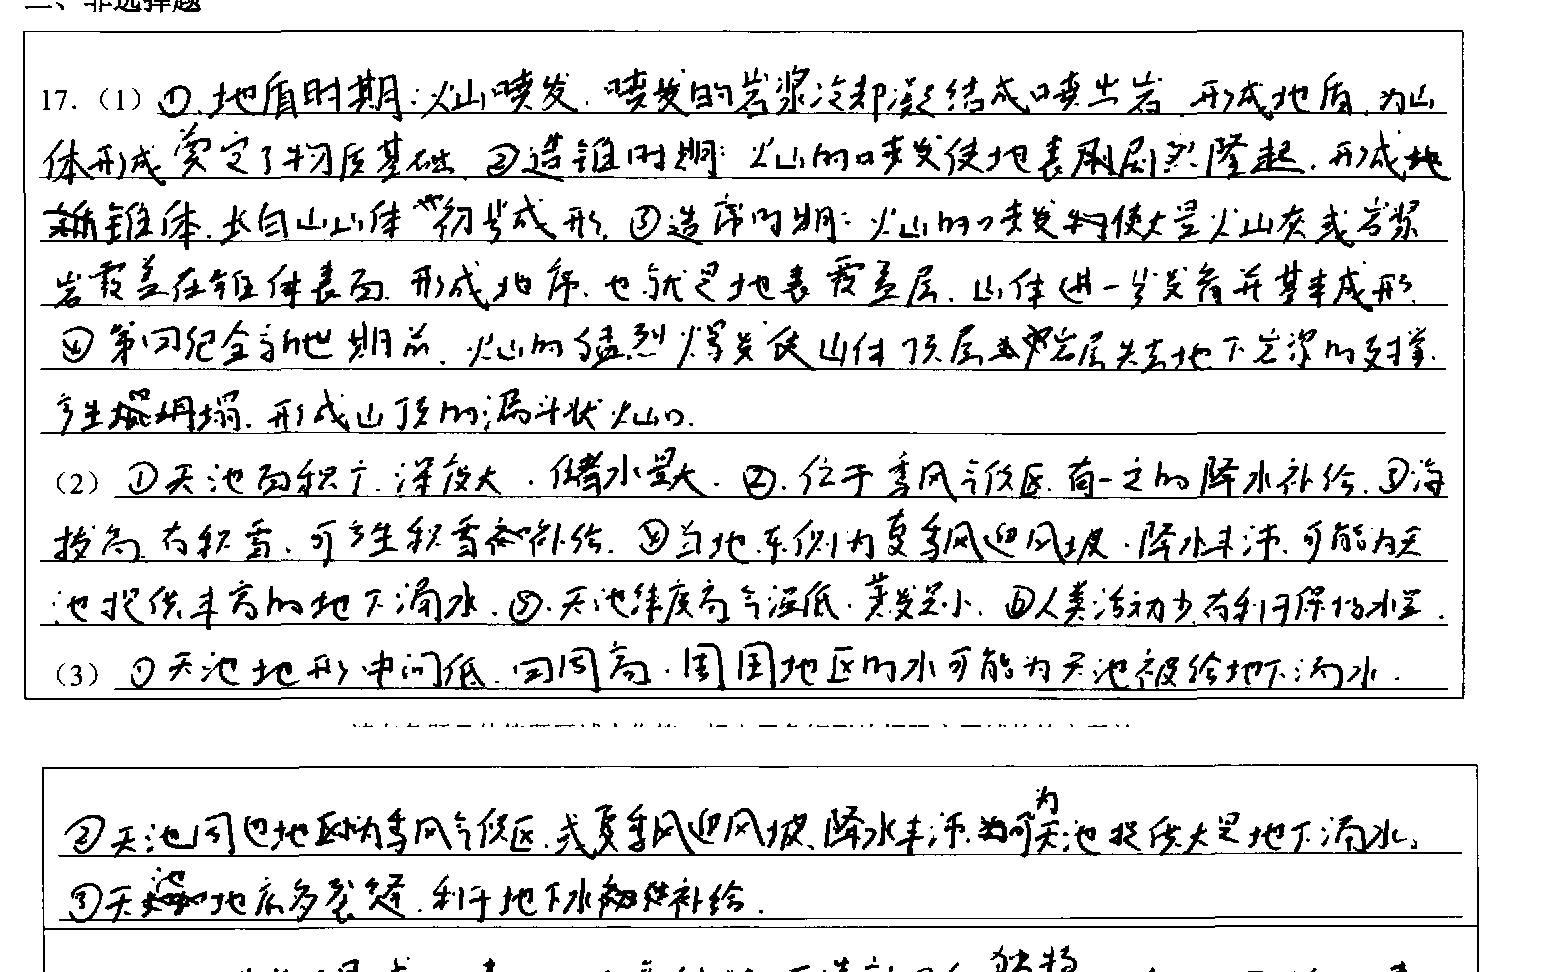 二、非选择题
17.(1) ①.地盾时期:火山喷发.喷发的岩浆冷却凝结成喷出岩.形成地盾.为山
体形成奠定了物质基础.②造锥时期:火山的喷发使地表剧烈隆起.形成地
锥体.长白山山体初步成形.③造席时期:火山的喷发物使大量火山灰或岩浆
岩覆盖在锥体表面.形成地席.也就是地表覆盖层.山体进一步发育并基本成形.
④第四纪全新世期前.火山的猛烈爆发使山体顶层岩层失去地下岩浆的支撑.
产生坍塌.形成山顶的漏斗状火山口.
(2) ①天池面积广.深度大.储水量大.②.位于季风气候区.有一定的降水补给.③海
拔高.有积雪.可产生积雪补给.④当地东侧为夏季风迎风坡.降水丰沛.可能为天
池提供丰富的地下涌水.⑤.天池纬度高气温低.蒸发量小.⑥人类活动少.有利于保持水量.
(3) ①天池地形中间低.四周高.周围地区的水可能为天池被给地下涌水.
②天池周边地区为季风气候区.或夏季风迎风坡.降水丰沛.可为天池提供大量地下涌水.
③天池地底多裂缝.利于地下水补给.
独特